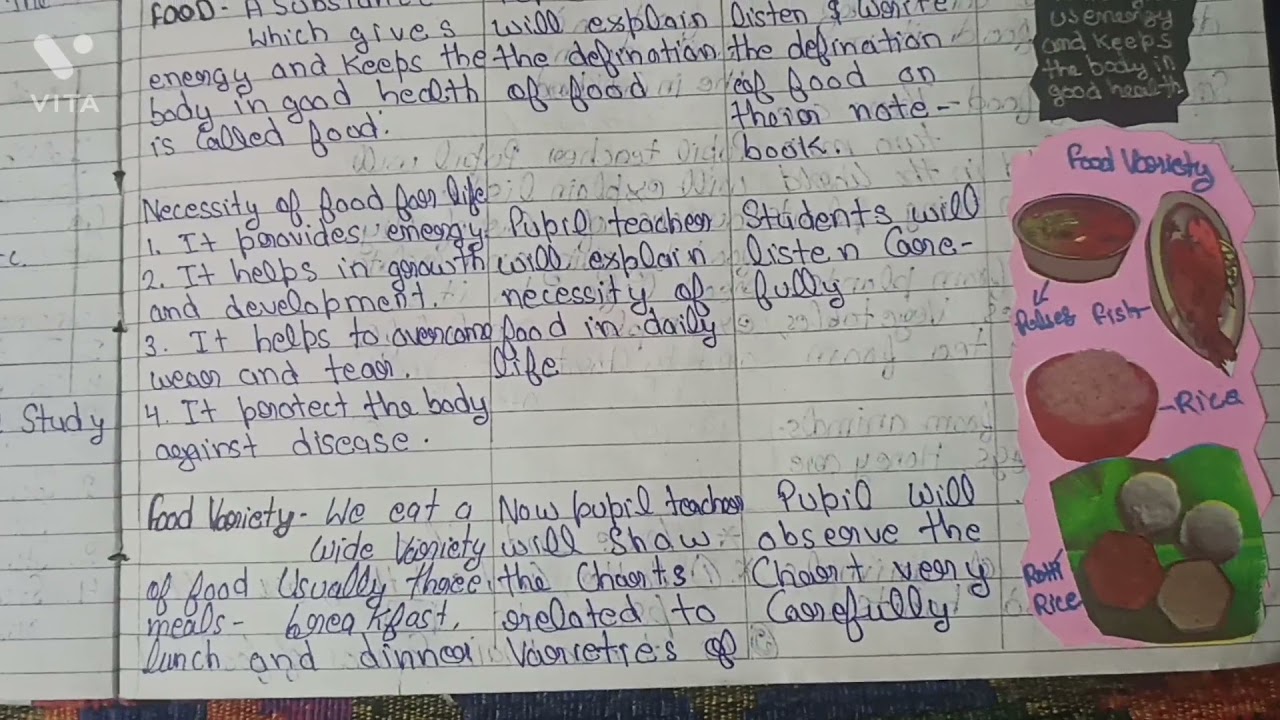 VITA
FOOD - A
which gives
energy and keeps the
body in good health
is called food.
Necessity of food for life
1. It provides energy.
2. It helps in growth
and development.
3. It helps to overcome
wear and tear.
4. It protect the body
against disease.
Food Variety - We eat a
wide variety
of food usually three
meals - breakfast,
lunch and dinner
will explain
the defination
of food
Pupil teacher
will explain
necessity of
food in daily
life
Now pupil teacher
will show
the Charts
related to
Varieties of
Listen & Write
the defination
of food on
their note-
book.
Students will
listen Care-
fully
Pupil will
observe the
Chart very
Carefully
Study
us energy
and keeps
the body in
good health
Food Variety
Pulses
Fish
Rice
Rotti
Rice